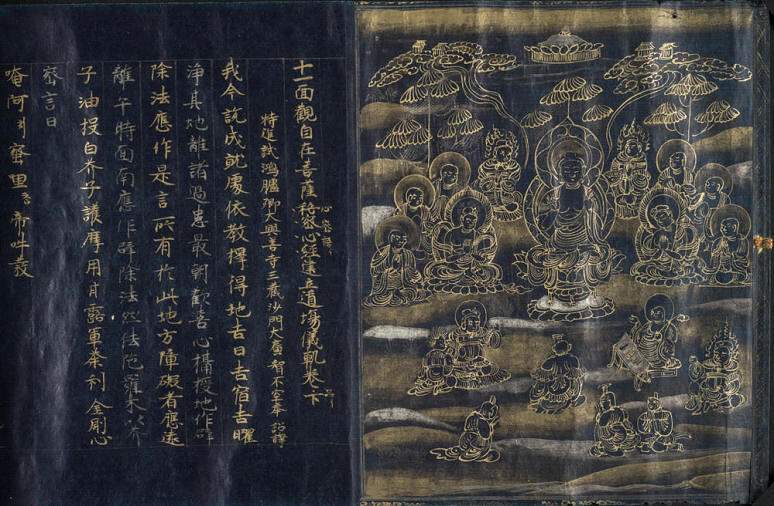 十一面觀自在菩薩心密言
秘密心經建立道場儀軌卷下
特進試鴻臚卿大興善寺三藏沙門大廣智不空奉 詔譯
我今說成就處依教擇得地吉日吉宿吉曜
淨其地離諸過患最朝歡喜心攝授地作辟
除法應作是言所有於此地方障礙者應遠
離午時面南應作辟除法然
子油投白芥子護摩用甘露軍荼利金剛心
密言曰
唵阿蜜里帝吽發